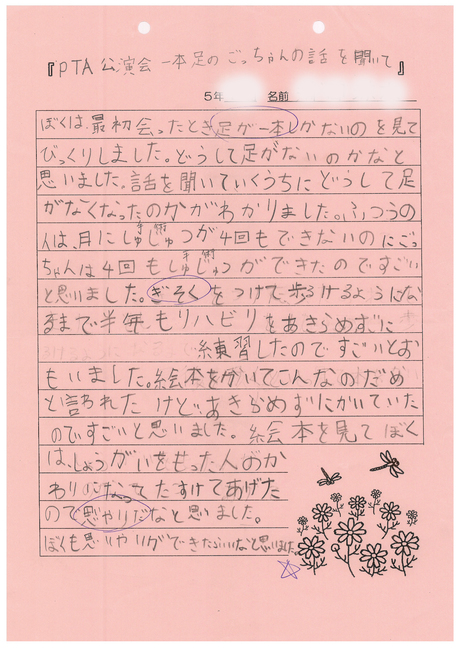 『PTA公演会 一本足のごっちゃんの話を聞いて』
5年 名前
ぼくは、最初会ったとき足が一本しかないのを見て
びっくりしました。どうして足がないのかなと
思いました。話を聞いていくうちにどうして足
がなくなったのかがわかりました。ふつうの
人は、月にしゅじゅつが4回もできないのにごっ
ちゃんは4回もしゅじゅつができたのですごい
と思いました。ぎそくをつけて歩るけるようにな
るまで半年もリハビリをあきらめずに
練習したのですごいとお
もいました。絵本をかいてこんなのだめ
と言られたけどあきらめずにかいていた
のですごいと思いました。絵本を見てぼく
は、しょうがいをもった人のか
わりになってたすけてあげた
ので思やりだなと思いました。
ぼくも思いやりができたらいいなと思いました。